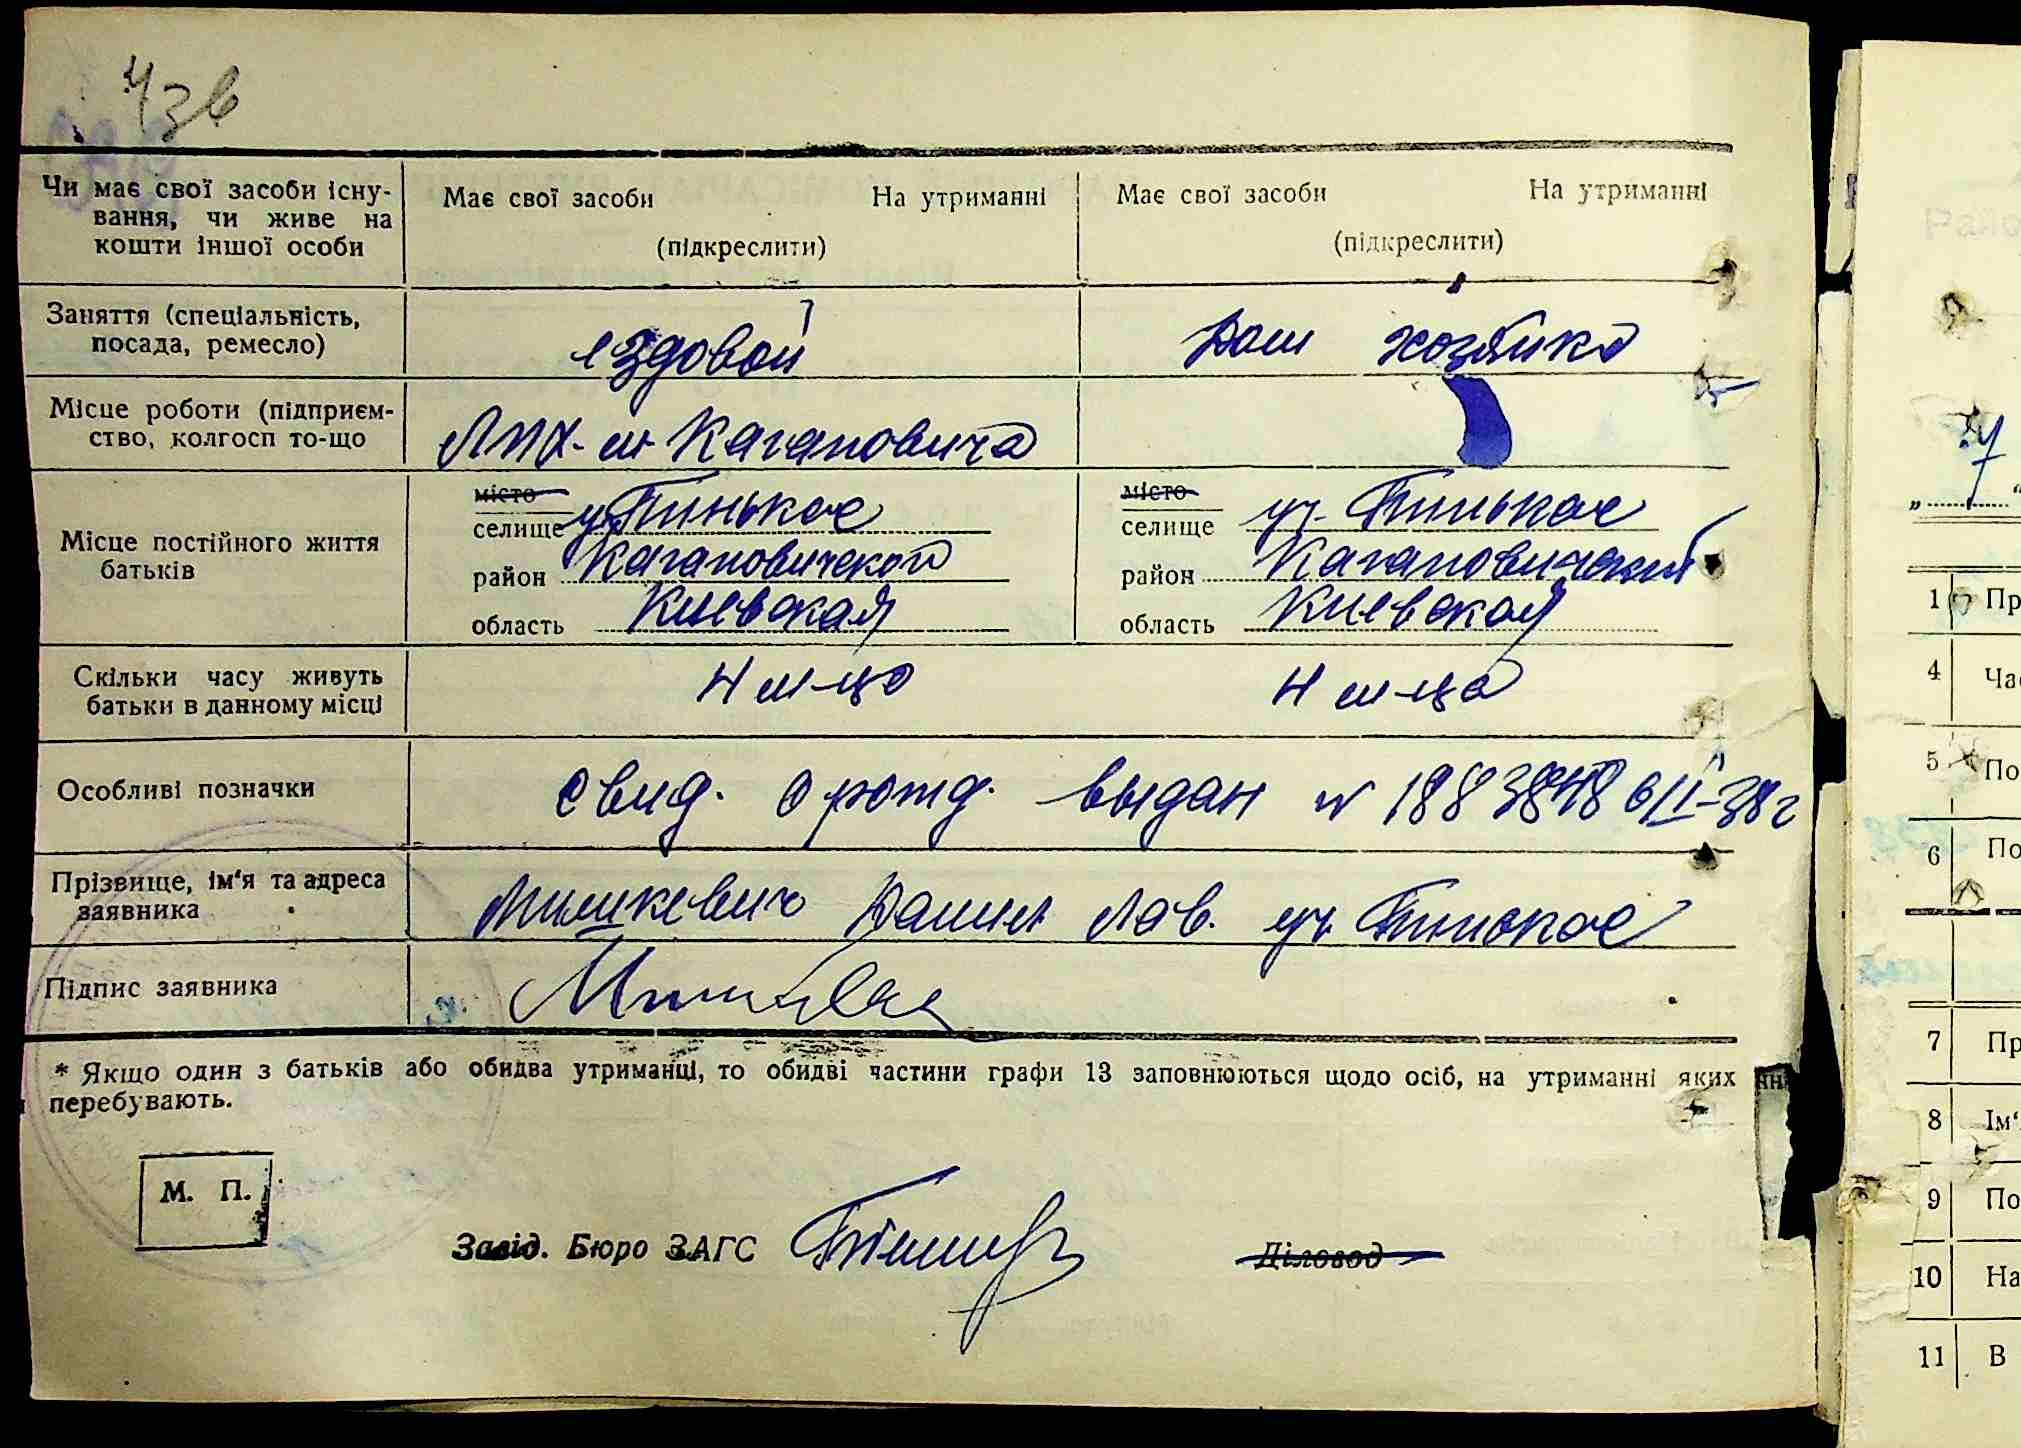 Чи має свої засоби існу-
вання, чи живе на
кошти іншої особи
Має свої засоби На утриманні
(підкреслити)
Має свої засоби На утриманні
(підкреслити)
Заняття (спеціальність,
посада, ремесло)
ездовой
Дом хозяйка
Місце роботи (підприєм-
ство, колгосп то-що
ЛПХ- Кагановича
Місце постійного життя
батьків
місто
селище
район Кагановичской
область Киевская
місто
селище уч.
район Кагановичский
область Киевская
Скільки часу живуть
батьки в данному місці
4 м-ца
4 м-ца
Особливі позначки
Свид. о рожд. выдан № 6/II-38г
Прізвище, ім'я та адреса
заявника
Мишкевич Данил Лав. уч.
Підпис заявника
* Якщо один з батьків або обидва утриманці, то обидві частини графи 13 заповнюються щодо осіб, на утриманні яких
перебувають.
М. П.
Завід. Бюро ЗАГС
Діловод
1 Пр
4 Час
5 По
6 По
7 Пр
8 Ім'
9 По
10 На
11 В